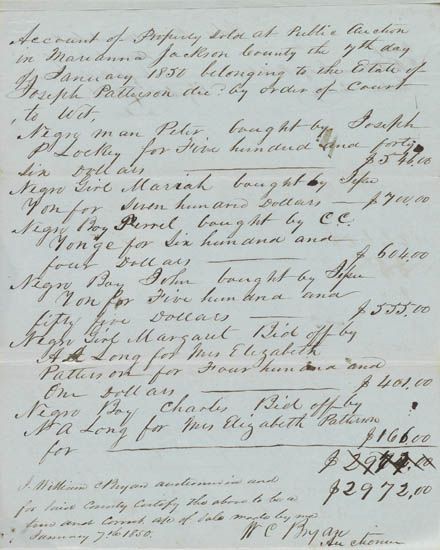 Account of Property Sold at Public Auction
in Marianna Jackson County the 7th day
of January 1850 belonging to the Estate of
Joseph Patterson dec. by order of Court
to Wit,
Negro man Peter, bought by Joseph
P Lockey for Five hundred and forty
Six Dollars — $546.00
Negro Girl Mariah bought by
Yon for Seven hundred Dollars — $700.00
Negro Boy Perrel, bought by C.C.
Yonge for Six hundred and
four Dollars — $604.00
Negro Boy John bought by
Yon for Five hundred and
fifty five Dollars — $555.00
Negro Girl Margaret Bid off by
Long for Mrs Elizabeth
Patterson for Four hundred and
One Dollars — $401.00
Negro Boy Charles Bid off by
N A Long for Mrs Elizabeth Patterson
for — $166.00
$2972.00
I William C Bryan auctioneer in and $2972,00
for said County certify the above to be a
true and correct of Sale made by me
January 7th 1850. W C Bryan
Auctioneer